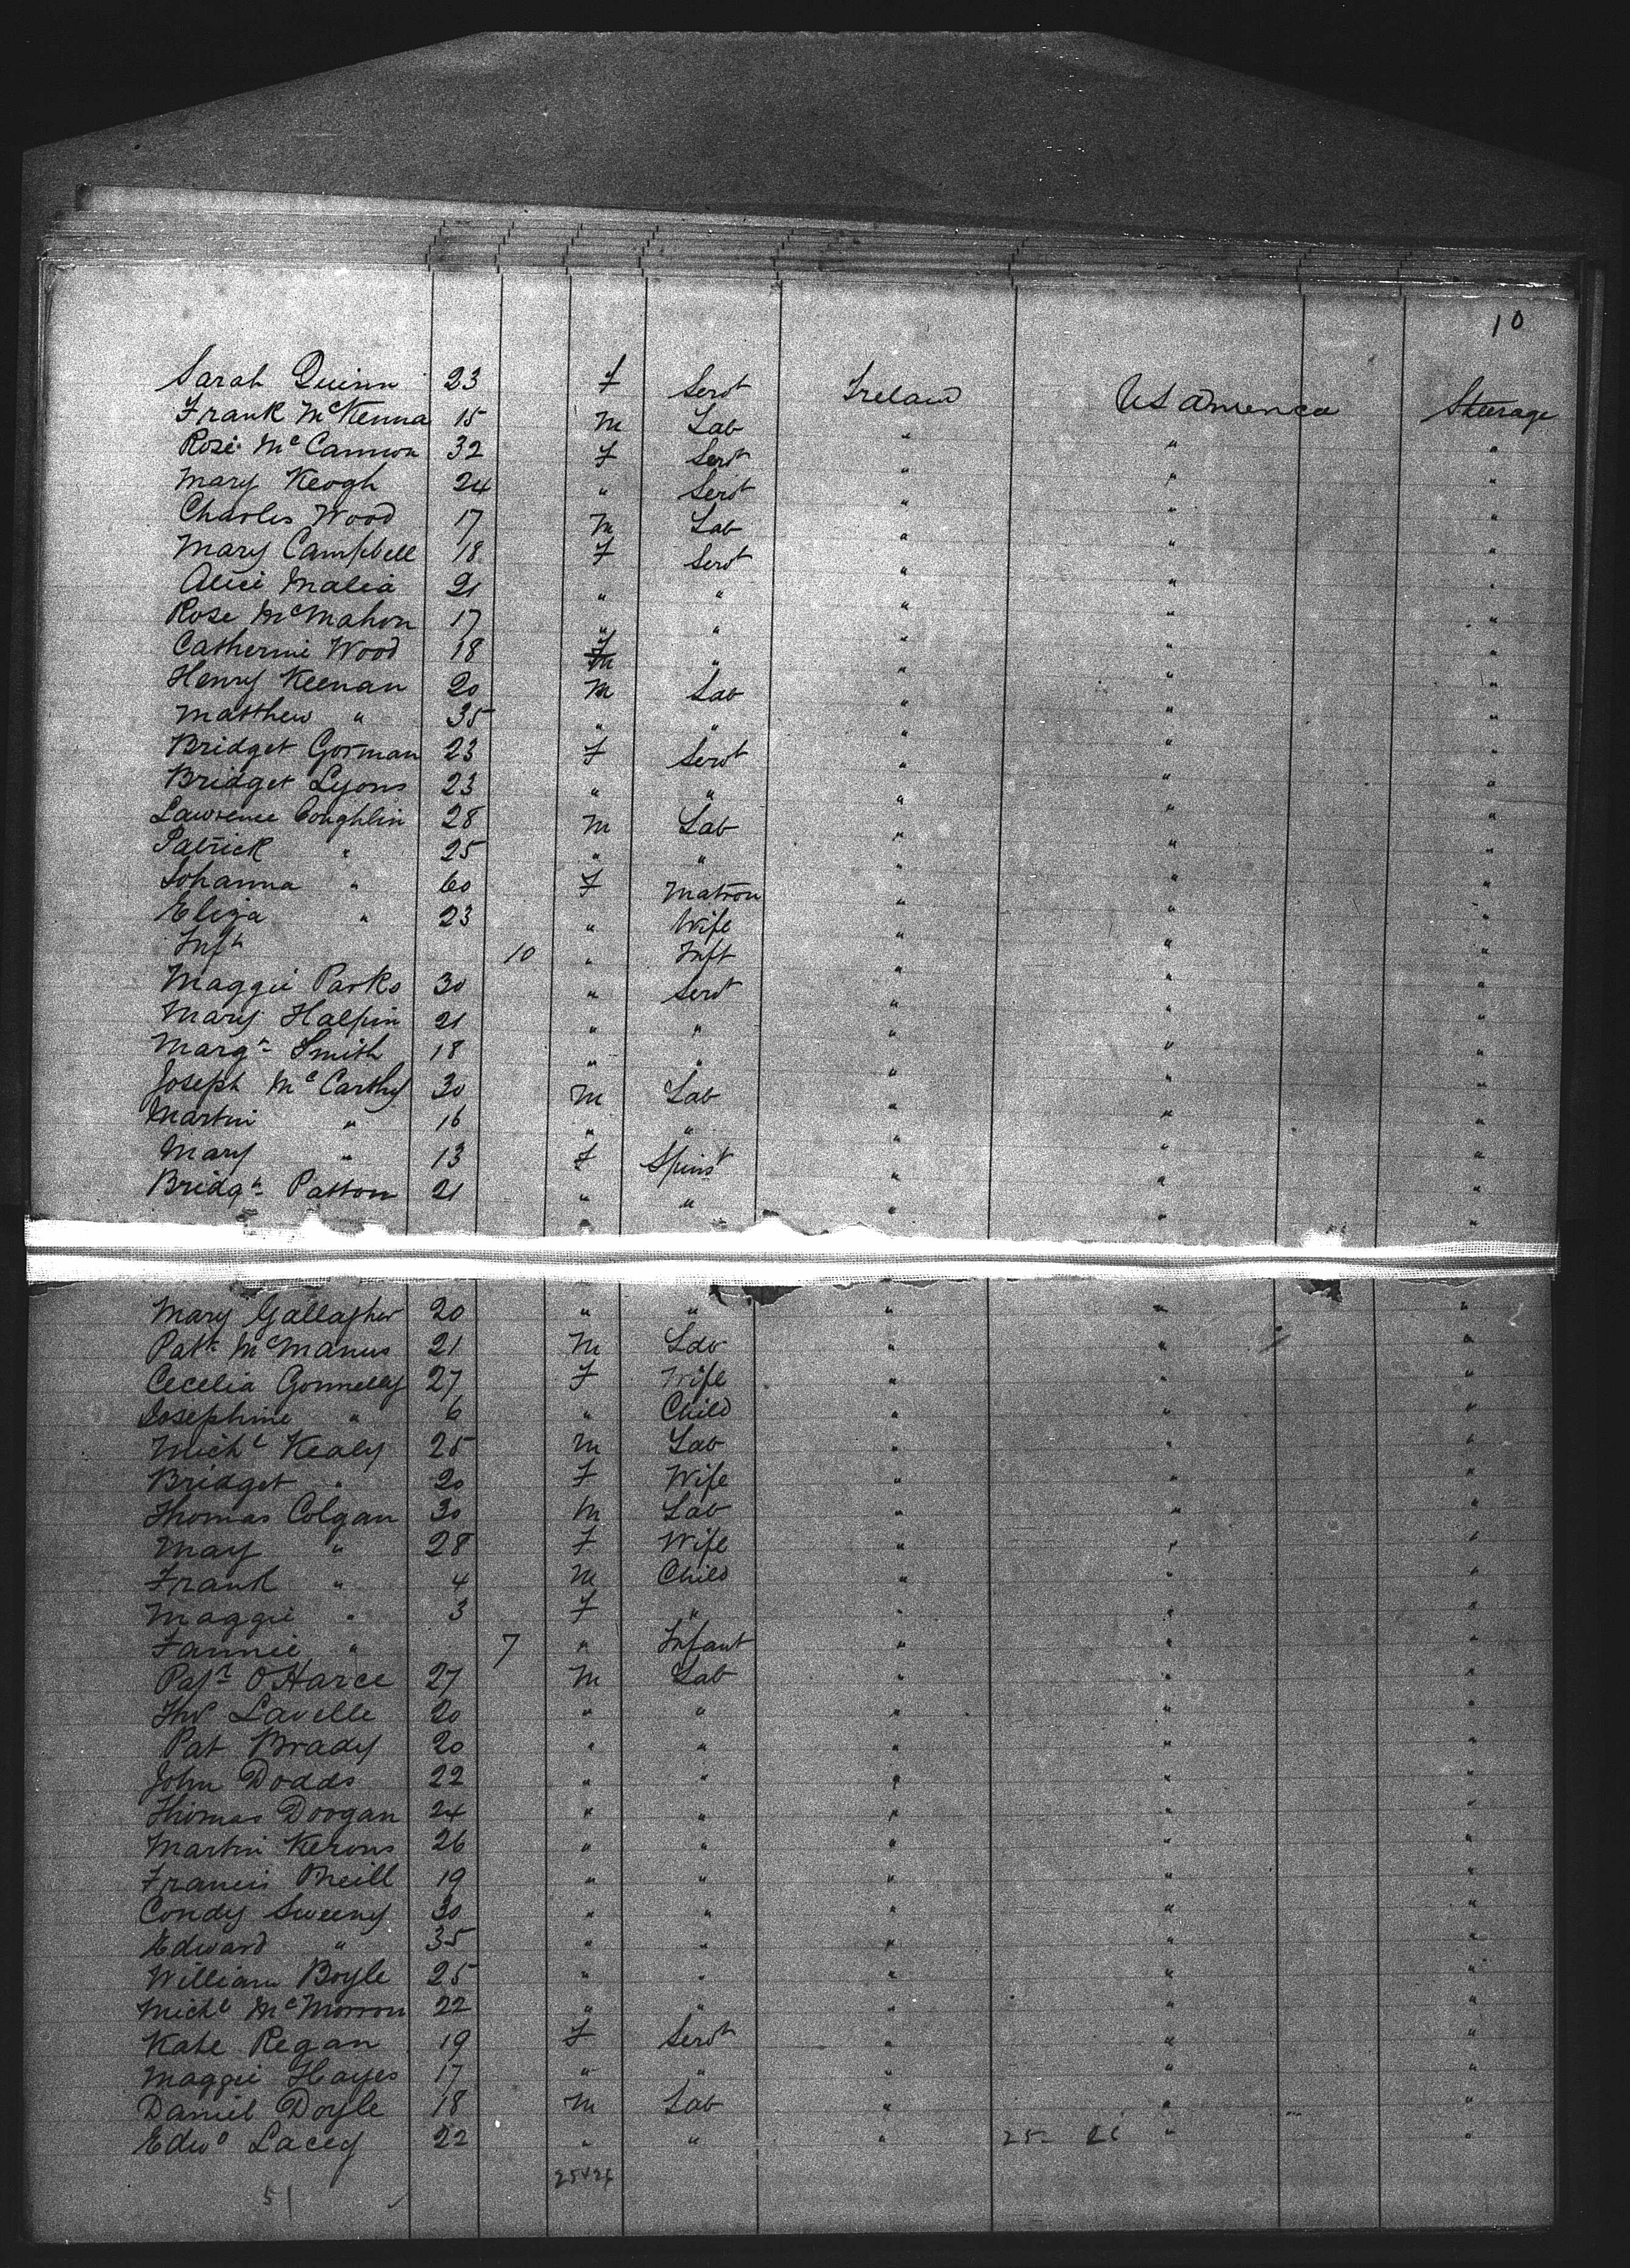 10
Sarah Quinn 23 F Servt Ireland US America Steerage
Frank McKenna 15 M Lab " " "
Rose McCannon 32 F Servt " " "
Mary Keogh 24 " Servt " " "
Charles Wood 17 M Lab " " "
Mary Campbell 18 F Servt " " "
Alice Malia 21 " " " " "
Rose McMahon 17 " " " " "
Catherine Wood 18 F " " " "
Henry Keenan 20 M Lab " " "
Matthew " 35 " " " " "
Bridget Gorman 23 F Servt " " "
Bridget Lyons 23 " " " " "
Lawrence Coughlin 28 M Lab " " "
Patrick " 25 " " " " "
Johanna " 60 F Matron " " "
Eliza " 23 " Wife " " "
Inft 10 " Inft " " "
Maggie Parks 30 " Servt " " "
Mary Halpin 21 " " " " "
Margt Smith 18 " " " " "
Joseph McCarthy 30 M Lab " " "
Martin " 16 " " " " "
Mary " 13 F Spinst " " "
Bridgt Patton 21 " " " " "
Mary Gallagher 20 " " " " "
Patk McManus 21 M Lab " " "
Cecelia Gonnelly 27 F Wife " " "
Josephine " 6 " Child " " "
Michl Kealy 25 M Lab " " "
Bridget " 20 F Wife " " "
Thomas Colgan 30 M Lab " " "
May " 28 F Wife " " "
Frank " 4 M Child " " "
Maggie " 3 F " " " "
Fannie " 7 " Infant " " "
Patk O'Harce 27 M Lab " " "
Lavelle 20 " " " " "
Pat Brady 20 " " " " "
John Dodds 22 " " " " "
Thomas Doogan 24 " " " " "
Martin Kerons 26 " " " " "
Francis ONeill 19 " " " " "
Condy Sweeny 30 " " " " "
Edward " 35 " " " " "
William Boyle 25 " " " " "
Michl McMorrow 22 " " " " "
Kate Regan 19 F Servt " " "
Maggie Hayes 17 " " " " "
Daniel Doyle 18 M Lab " " "
Edwd Lacey 22 " " " " "
51